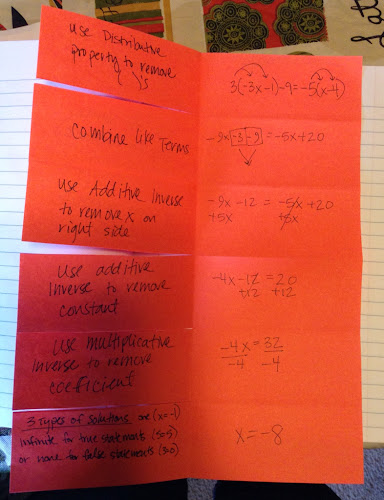 use Distributive
property to remove
( )'s
3(-3x-1)-9=-5(x-4)
Combine like Terms
-9x -3 -9 = -5x+20
use Additive inverse
to remove x on
right side
-9x -12 = -5x +20
+5x +5x
use additive
inverse to remove
constant
-4x-12=20
+12 +12
use multiplicative
inverse to remove
coefficient
-4x = 32
-4 -4
3 Types of Solutions are (x=-1)
infinite for true statements (5=5)
or none for false statements (3=0)
x=-8